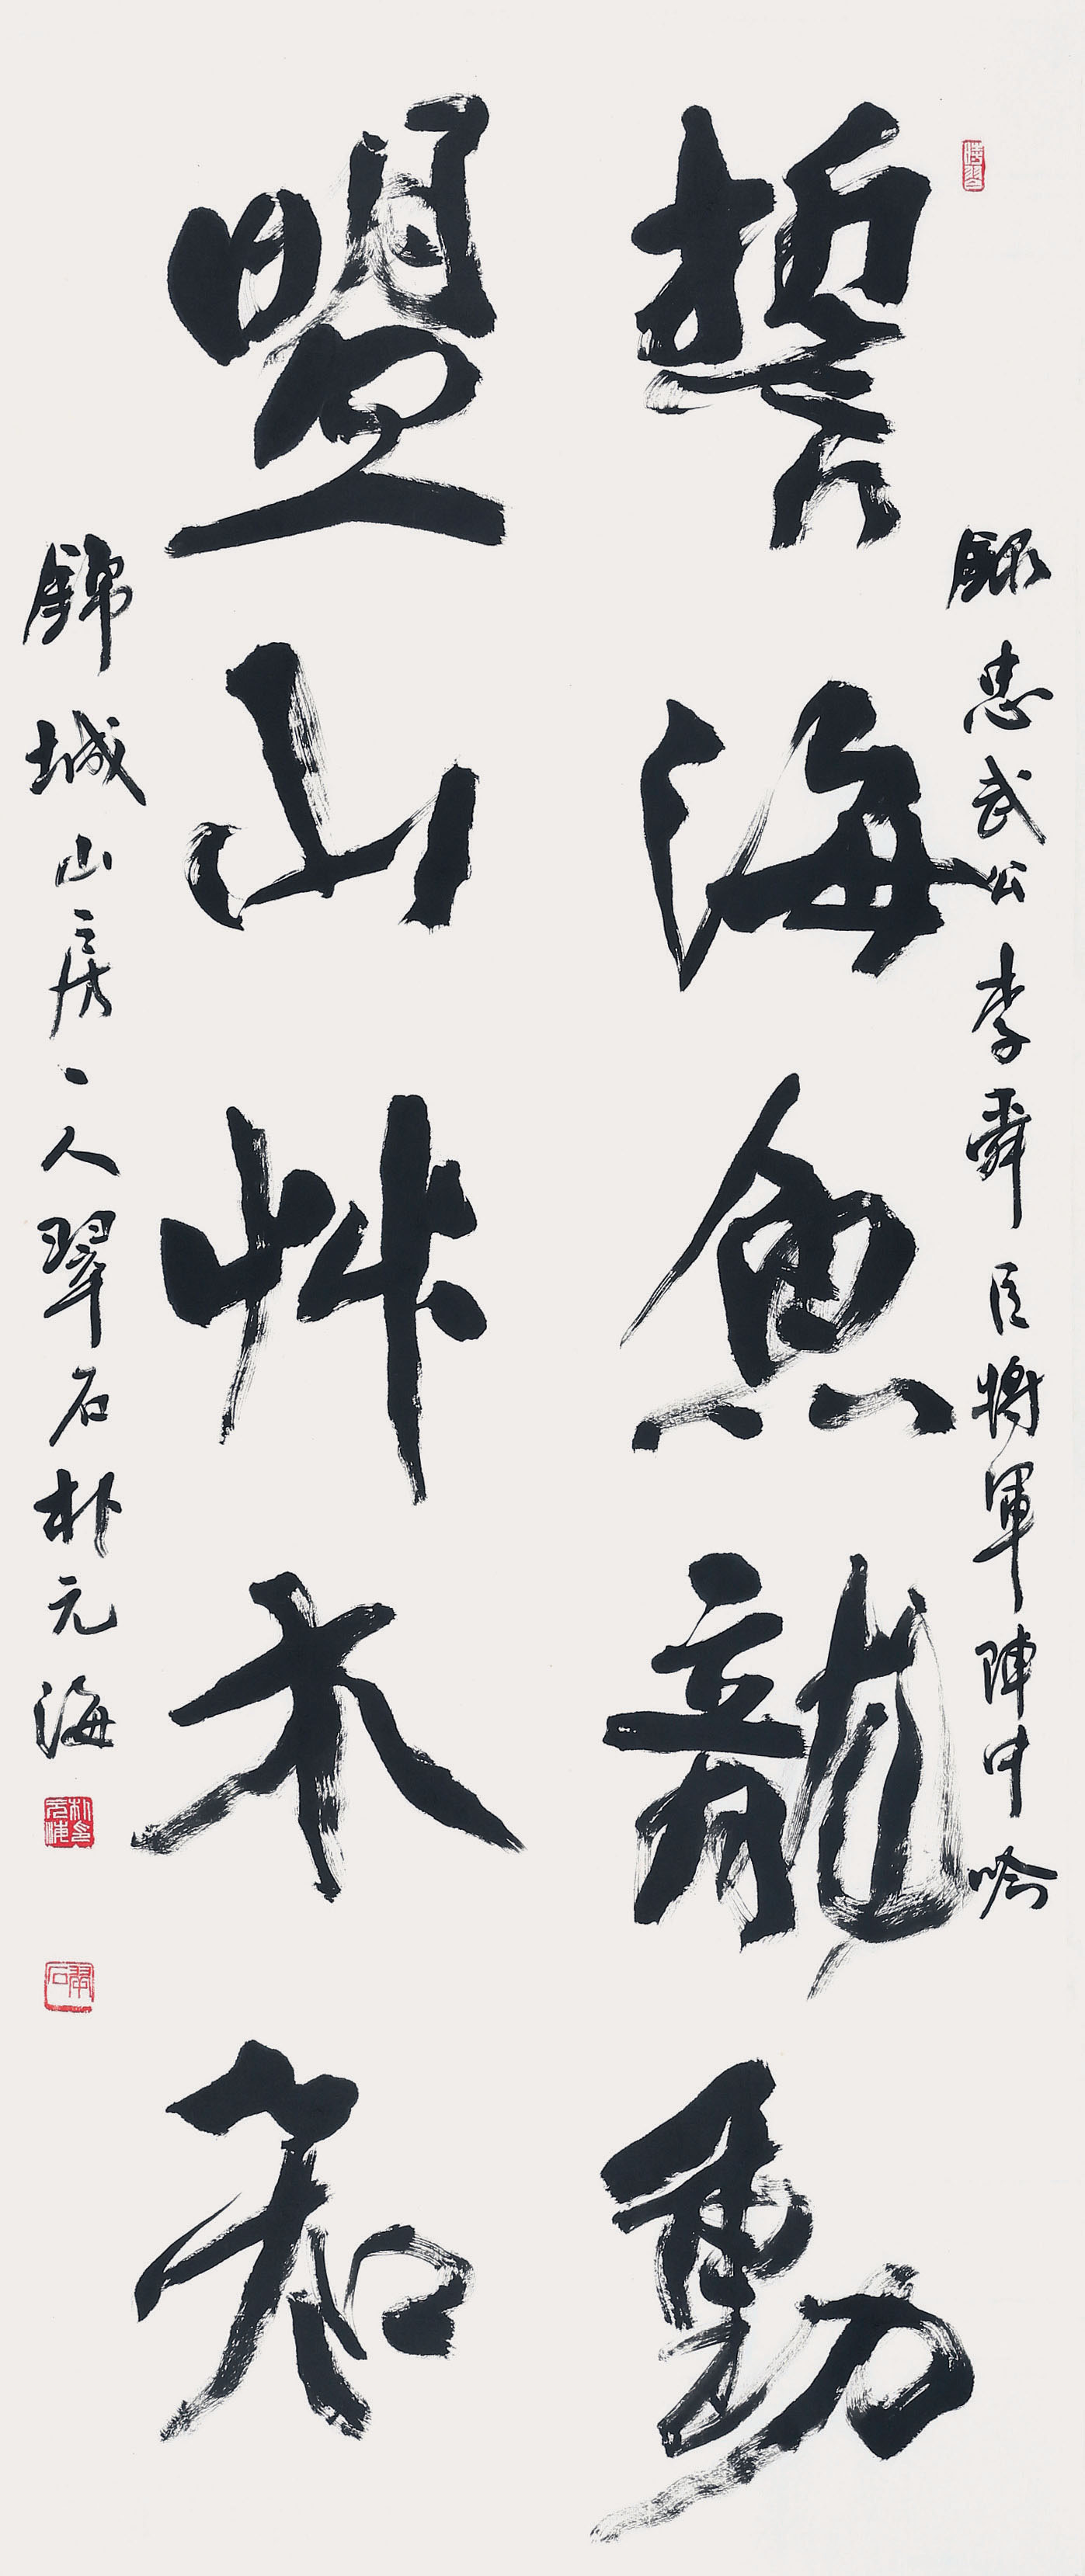 錄忠武公李舜臣將軍陣中吟
誓海魚龍動
盟山艸木知
錦城山房一人翠石朴元海